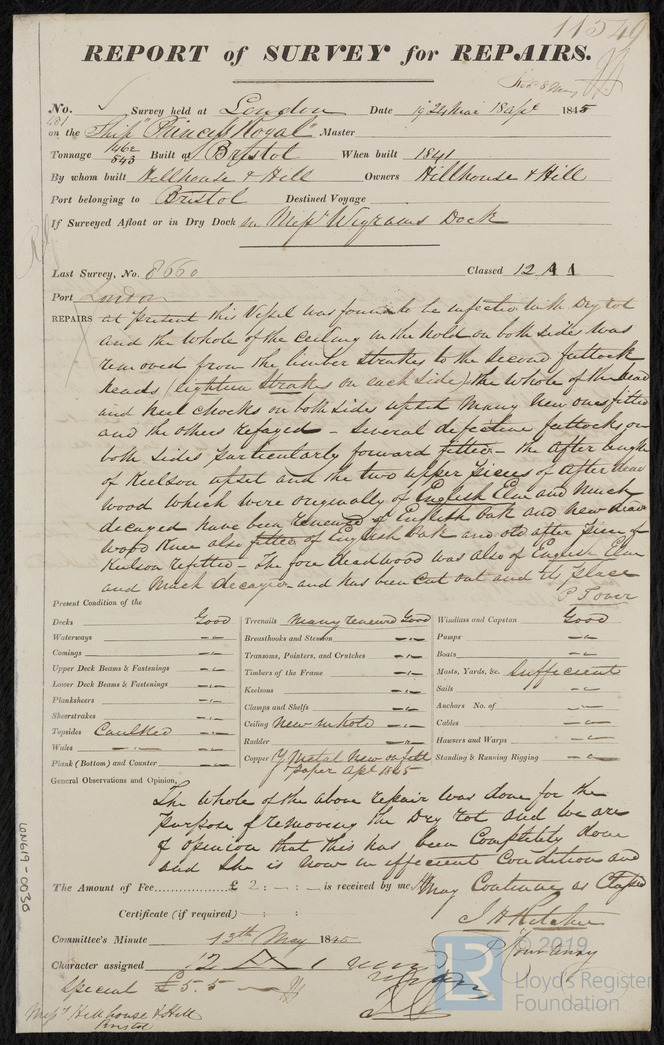 11549
REPORT of SURVEY for REPAIRS.
No. 481 Survey held at London Date 19, 24 Mar 18 Apl 1845
on the Ship "Princess Royal" Master
Tonnage 1462/543 Built at Bristol When built 1841
By whom built Hillhouse & Hill Owners Hillhouse & Hill
Port belonging to Bristol Destined Voyage
If Surveyed Afloat or in Dry Dock in Messrs Wigrams Dock
Last Survey, No. 8660 Classed 12 A 1
Port London
REPAIRS at present this Vessel was found to be infected with Dry rot
and the whole of the ceiling in the hold on both sides was
removed from the limber strakes to the second futtock
heads (eighteen strakes on each side) the whole of the head
and heel chocks on both sides upset many new ones fitted
and the others refayed - Several defective futtocks on
both sides particularly forward fitted - the After length
of Keelson upset and the two upper pieces of After dead
wood which were originally of English Elm and much
decayed have been renewed of English Oak and new dead
wood Knee also fitted of English Oak and old after piece of
Keelson refitted - The fore deadwood was also of English Elm
and much decayed and has been cut out and its place
P Tover
Present Condition of the
Decks Good
Waterways
Comings
Upper Deck Beams & Fastenings
Lower Deck Beams & Fastenings
Planksheers
Sheerstrakes
Topsides Caulked
Wales
Plank (Bottom) and Counter
Treenails Many renewed Good
Breasthooks and Stemson
Transoms, Pointers, and Crutches
Timbers of the Frame
Keelsons
Clamps and Shelfs
Ceiling New in hold
Rudder
Copper Y Metal New on felt
& paper Apl 1845
Windlass and Capstan Good
Pumps
Boats
Masts, Yards, &c. Sufficient
Sails
Anchors No. of
Cables
Hawsers and Warps
Standing & Running Rigging
General Observations and Opinion,
The whole of the above repair was done for the
purpose of removing the Dry rot and we are
of opinion that this has been completely done
and she is now in efficient Condition and
The Amount of Fee £ 2 : - : - is received by me May Continue as Classed
Certificate (if required) - : - :
J H Ritchie
Committee's Minute 13th May 1845
P Courtenay
Character assigned 12 A 1
Special £5.5
Messrs Hillhouse & Hill
Bristol
LON619-0030
© 2019
LR Lloyd's Register
Foundation